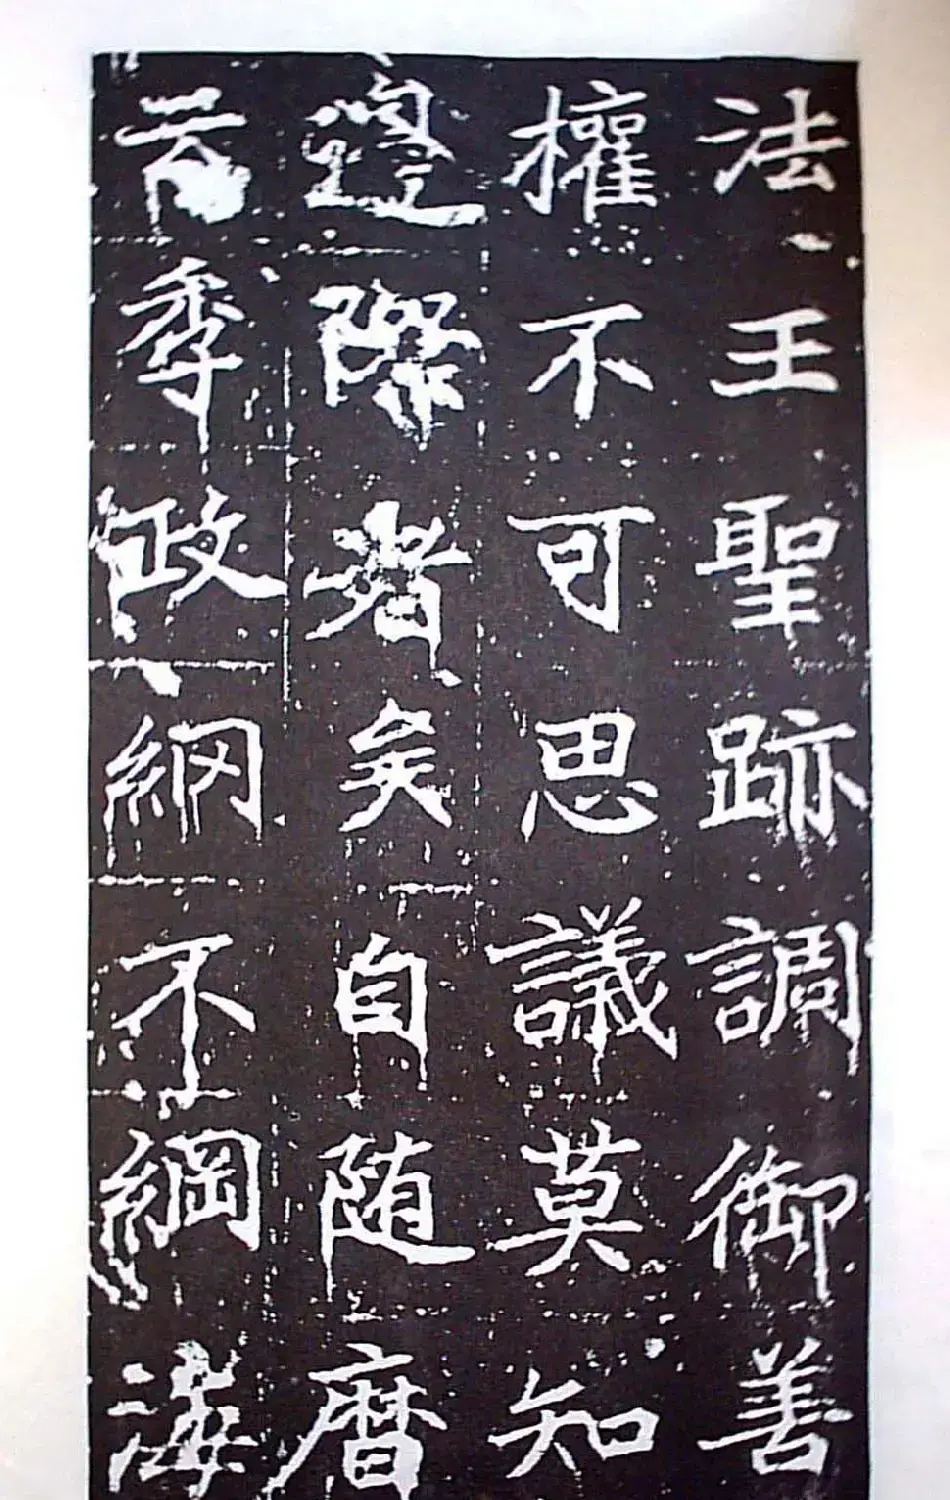 法王聖跡調御善
權不可思議莫知
邊際者矣自随曆
云季政網不綱海